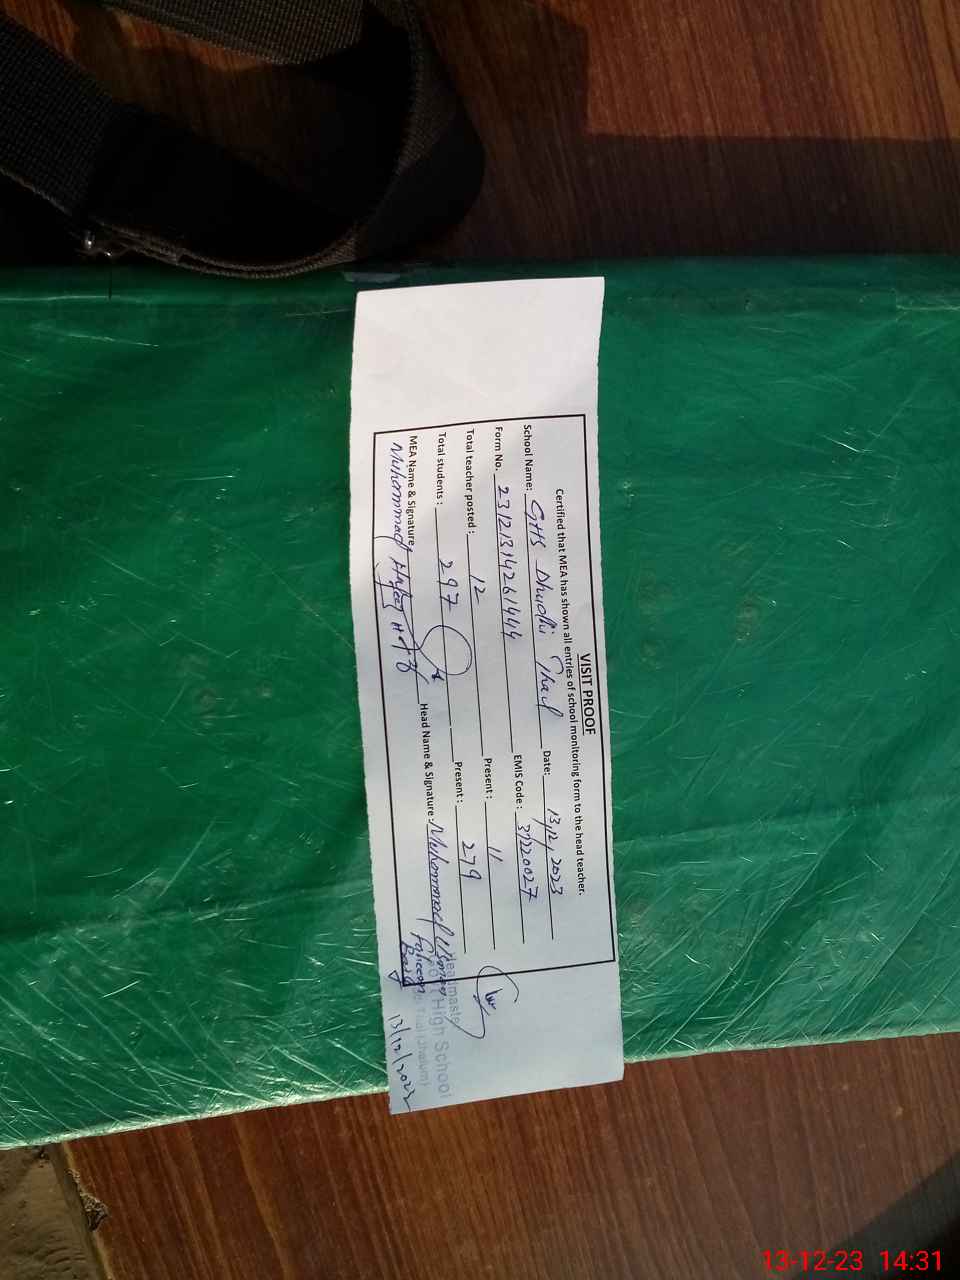 VISIT PROOF
Certified that MEA has shown all entries of school monitoring form to the head teacher.
School Name: GHS Dhudhi Thal Date: 13/12/2023
Form No. 23121314261444 EMIS Code: 37220027
Total teacher posted: 12 Present: 11
Total students: 297 Present: 279
MEA Name & Signature Head Name & Signature: Muhammad Usman
Muhammad Hafeez
Faheem
Baig
Headmaster
Govt High School
Thal (Jhelum)
13/12/2023
13-12-23 14:31